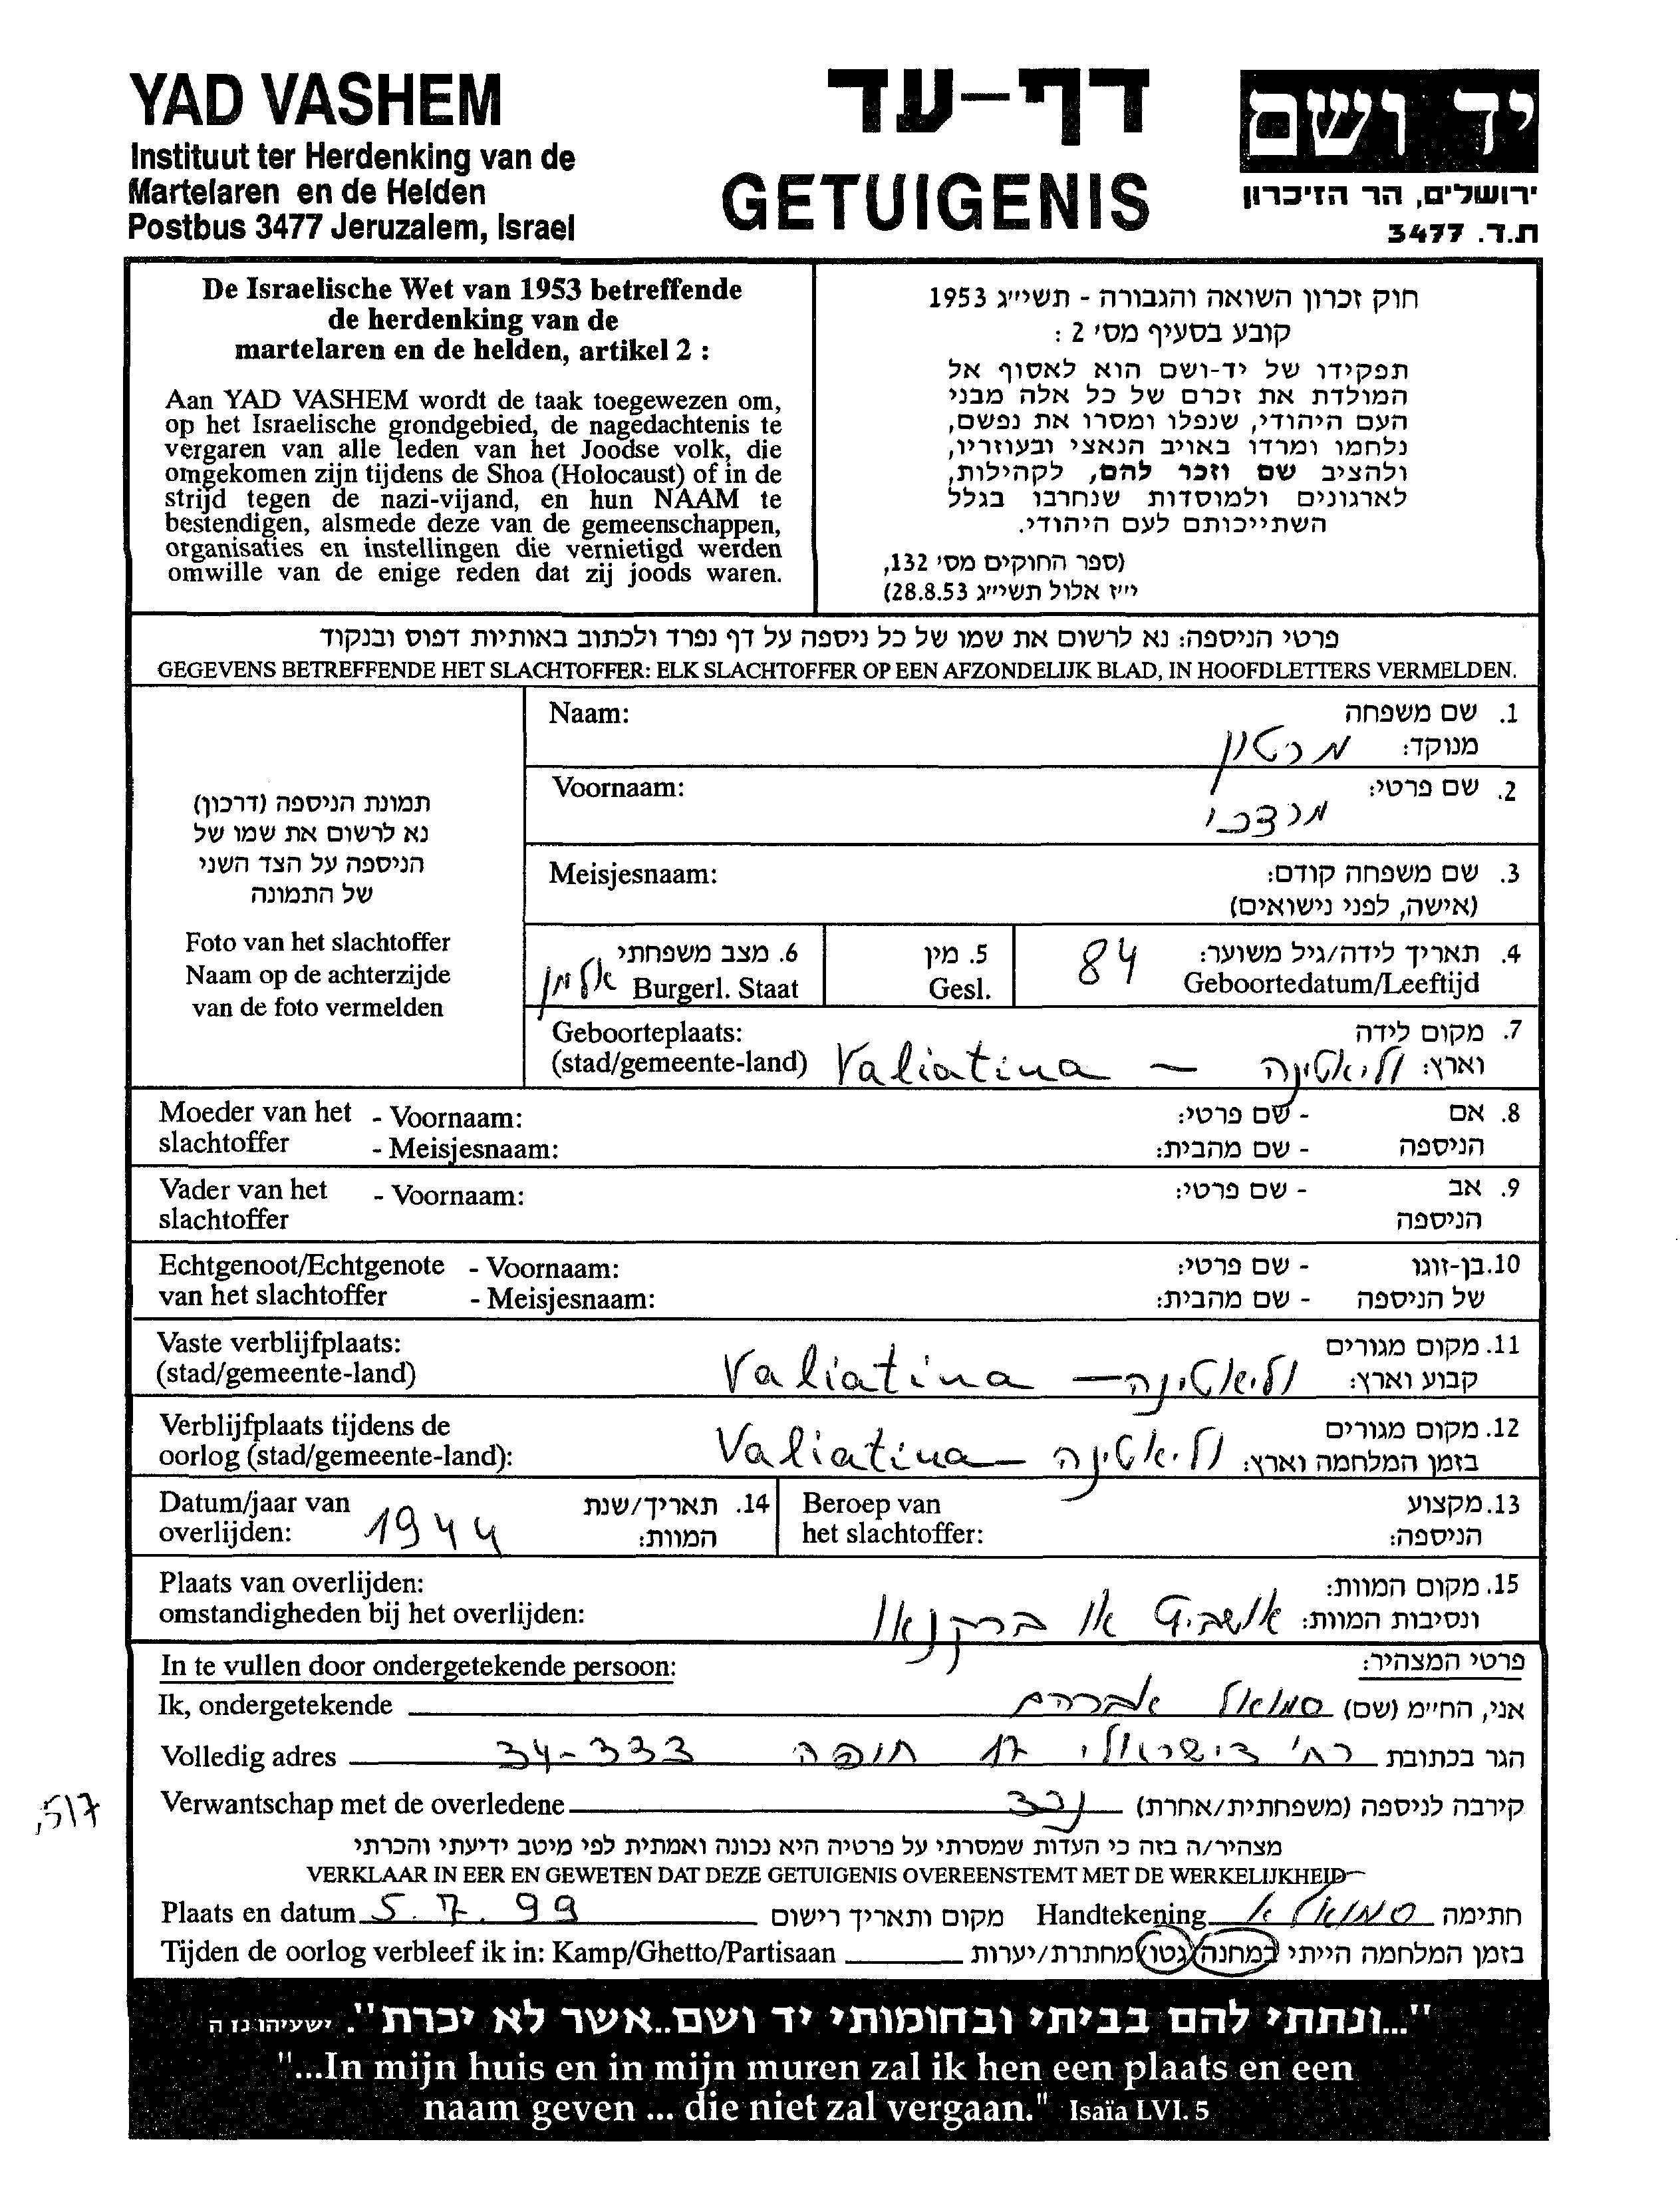 YAD VASHEM
Instituut ter Herdenking van de
Martelaren en de Helden
Postbus 3477 Jeruzalem, Israel
דף-עד
GETUIGENIS
יד ושם
ירושלים, הר הזיכרון
ת.ד. 3477
De Israelische Wet van 1953 betreffende
de herdenking van de
martelaren en de helden, artikel 2 :
Aan YAD VASHEM wordt de taak toegewezen om,
op het Israelische grondgebied, de nagedachtenis te
vergaren van alle leden van het Joodse volk, die
omgekomen zijn tijdens de Shoa (Holocaust) of in de
strijd tegen de nazi-vijand, en hun NAAM te
bestendigen, alsmede deze van de gemeenschappen,
organisaties en instellingen die vernietigd werden
omwille van de enige reden dat zij joods waren.
חוק זכרון השואה והגבורה - תשי״ג 1953
קובע בסעיף מס׳ 2 :
תפקידו של יד-ושם הוא לאסוף אל
המולדת את זכרם של כל אלה מבני
העם היהודי, שנפלו ומסרו את נפשם,
נלחמו ומרדו באויב הנאצי ובעוזריו,
ולהציב שם וזכר להם, לקהילות,
לארגונים ולמוסדות שנחרבו בגלל
השתייכותם לעם היהודי.
(ספר החוקים מס׳ 132,
י״ז אלול תשי״ג 28.8.53)
פרטי הניספה: נא לרשום את שמו של כל ניספה על דף נפרד ולכתוב באותיות דפוס ובנקוד
GEGEVENS BETREFFENDE HET SLACHTOFFER: ELK SLACHTOFFER OP EEN AFZONDELIJK BLAD, IN HOOFDLETTERS VERMELDEN.
תמונת הניספה (דרכון)
נא לרשום את שמו של
הניספה על הצד השני
של התמונה
Foto van het slachtoffer
Naam op de achterzijde
van de foto vermelden
Naam:
1. שם משפחה
מנוקד: מרטון
Voornaam:
2. שם פרטי:
מרדכי
Meisjesnaam:
3. שם משפחה קודם:
(אישה, לפני נישואים)
4. תאריך לידה/גיל משוער: 84
Geboortedatum/Leeftijd
5. מין
Gesl.
6. מצב משפחתי
Burgerl. Staat אלמן
Geboorteplaats:
(stad/gemeente-land) Valiatina –
7. מקום לידה
וארץ: וליאטינה
Moeder van het - Voornaam:
slachtoffer - Meisjesnaam:
8. אם - שם פרטי:
הניספה - שם מהבית:
Vader van het - Voornaam:
slachtoffer
9. אב - שם פרטי:
הניספה
Echtgenoot/Echtgenote - Voornaam:
van het slachtoffer - Meisjesnaam:
10. בן-זוגו - שם פרטי:
של הניספה - שם מהבית:
Vaste verblijfplaats:
(stad/gemeente-land) Valiatina –
11. מקום מגורים
קבוע וארץ: וליאטינה
Verblijfplaats tijdens de
oorlog (stad/gemeente-land): Valiatina –
12. מקום מגורים
בזמן המלחמה וארץ: וליאטינה
Datum/jaar van
overlijden: 1944
14. תאריך/שנת
המוות:
Beroep van
het slachtoffer:
13. מקצוע
הניספה:
Plaats van overlijden:
omstandigheden bij het overlijden:
15. מקום המוות:
ונסיבות המוות: אושביץ או ברקנאו
In te vullen door ondergetekende persoon:
פרטי המצהיר:
Ik, ondergetekende
אני, החי״מ (שם) סמואל אברהם
Volledig adres
הגר בכתובת רח׳ ד׳ישראלי 17 חיפה 34-333
Verwantschap met de overledene
קירבה לניספה (משפחתית/אחרת) נכד
517,
מצהיר/ה בזה כי העדות שמסרתי על פרטיה היא נכונה ואמתית לפי מיטב ידיעתי והכרתי
VERKLAAR IN EER EN GEWETEN DAT DEZE GETUIGENIS OVEREENSTEMT MET DE WERKELIJKHEID
Plaats en datum 5.7.99 מקום ותאריך רישום
Handtekening סמואל א חתימה
Tijden de oorlog verbleef ik in: Kamp/Ghetto/Partisaan
בזמן המלחמה הייתי במחנה/גטו/מחתרת/יערות
"...ונתתי להם בביתי ובחומותי יד ושם..אשר לא יכרת". ישעיהו נו ה
"...In mijn huis en in mijn muren zal ik hen een plaats en een
naam geven ... die niet zal vergaan." Isaïa LVI. 5